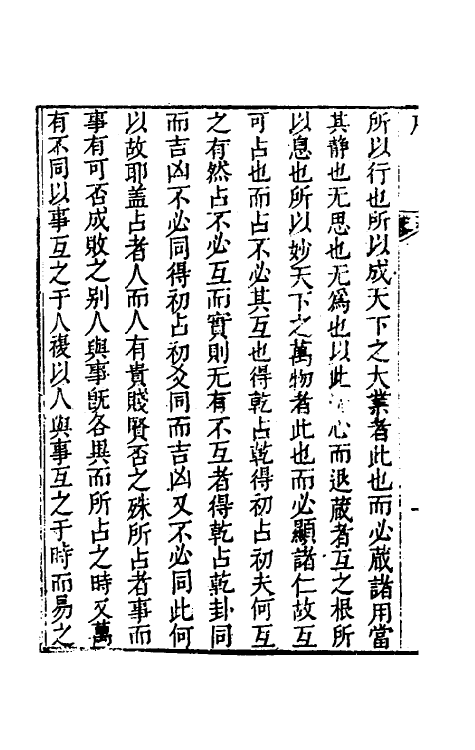 所以行也所以成天下之大業者此也而必藏諸用當
其靜也无思也无爲也以此心而退藏者互之根所
以息也所以妙天下之萬物者此也而必顯諸仁故互
可占也而占不必其互也得乾占乾得初占初夫何互
之有然占不必互而實則无有不互者得乾占乾卦同
而吉凶不必同得初占初爻同而吉凶又不必同此何
以故耶盖占者人而人有貴賤賢否之殊所占者事而
事有可否成敗之别人與事旣各異而所占之時又萬
有不同以事互之于人複以人與事互之于時而易之